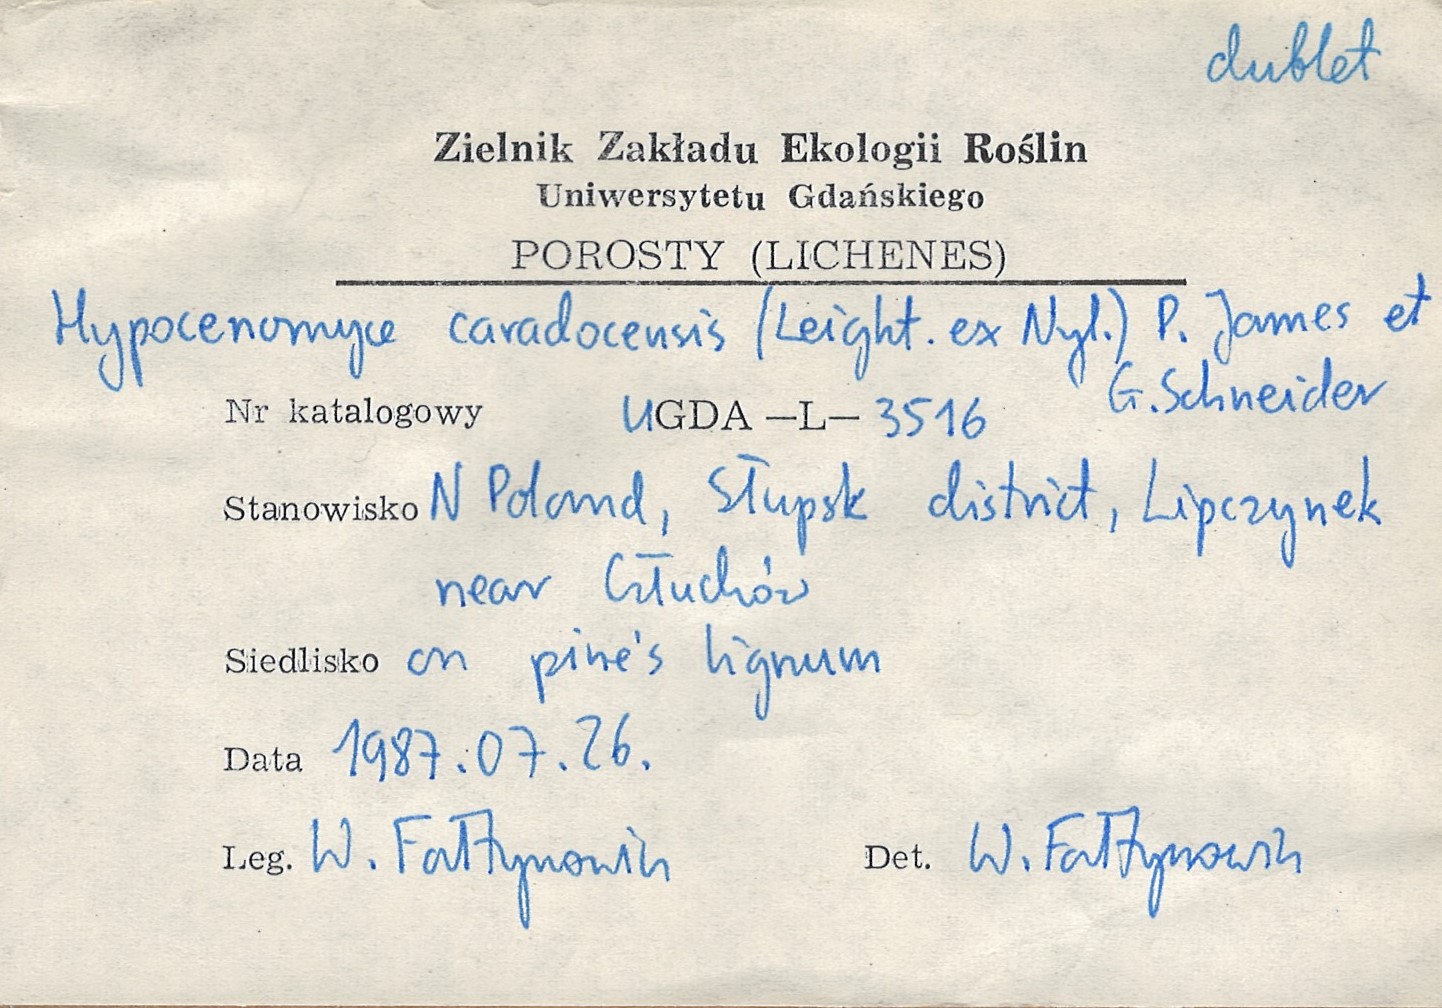 dublet
Zielnik Zakładu Ekologii Roślin
Uniwersytetu Gdańskiego
POROSTY (LICHENES)
Hypocenomyce caradocensis (Leight. ex Nyl.) P. James et
G. Schneider
Nr katalogowy UGDA —L— 3516
Stanowisko N Poland, Słupsk district, Lipczynek
near Człuchów
Siedlisko on pine's lignum
Data 1987.07.26.
Leg. W. Fałtynowicz
Det. W. Fałtynowicz